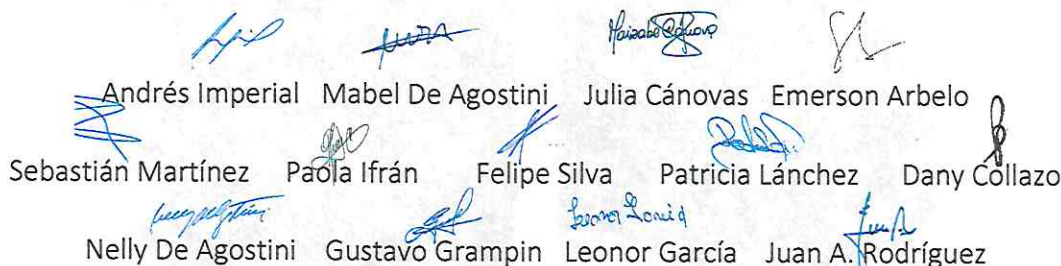 Andrés Imperial Mabel De Agostini Julia Cánovas Emerson Arbelo
Sebastián Martínez Paola Ifrán Felipe Silva Patricia Lánchez Dany Collazo
Leonor García
Nelly De Agostini Gustavo Grampin Leonor García Juan A. Rodríguez